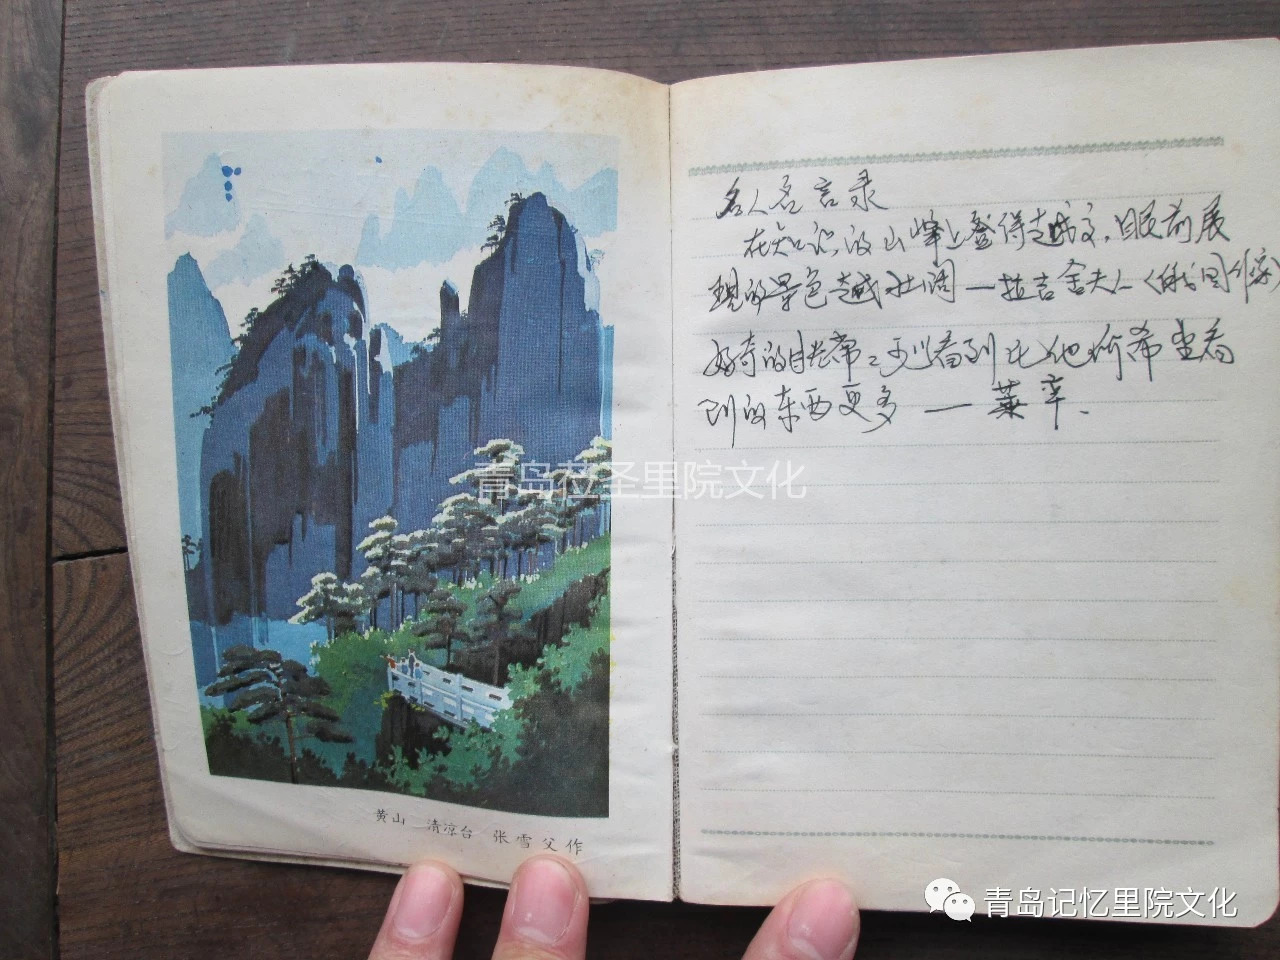 黄山 清凉台 张雪父作
名人名言录
在知识的山峰上登得越高，眼前展
现的景色越壮阔 — 拉吉舍夫人〈俄国作家〉
好奇的目光常常可以看到比他所希望看
到的东西更多 — 莱辛.
青岛莅圣里院文化
青岛记忆里院文化